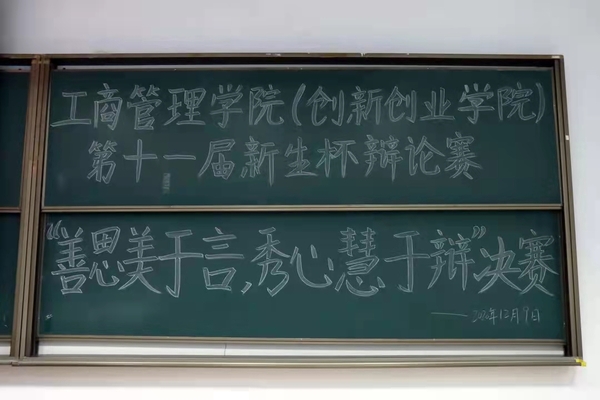 工商管理学院(创新创业学院)
第十一届新生杯辩论赛
“善思美于言,秀心慧于辩”决赛
——2020年12月9日